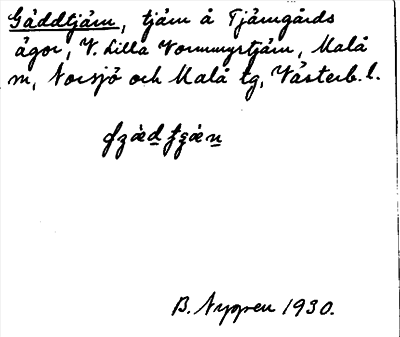 Gäddtjärn, tjärn å Tjärngårds
ägor, V. Lilla Vormmyrtjärn, Malå
m, Norsjö och Malå tg, Västerb. l.
B. Nygren 1930.